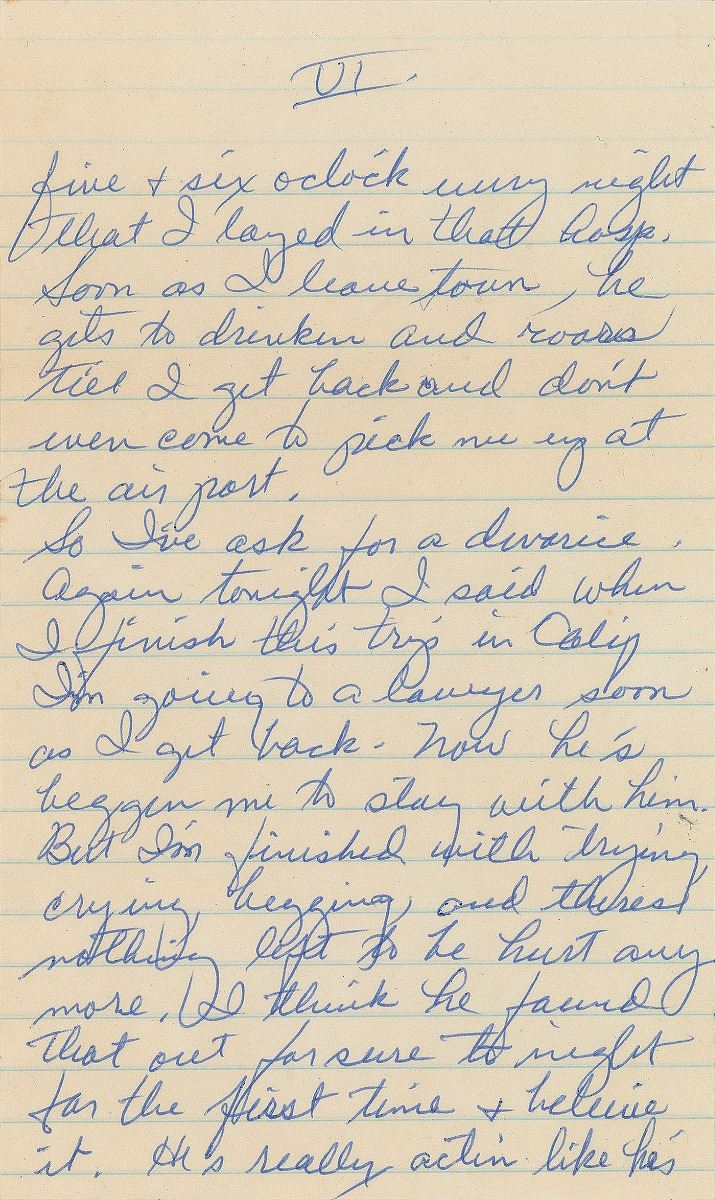 VI.
five + six oclock every night
that I layed in that hosp.
Soon as I leave town, he
gits to drinken and roars
till I get back and don't
even come to pick me up at
the air port.
So I've ask for a divorice.
Again tonight I said when
I finish this trip in Calif
I'm going to a lawyer soon
as I get back - Now he's
beggen me to stay with him.
But I'm finished with trying,
crying, begging, and theres
nothing left to be hurt any
more. I think he found
that out for sure to night
for the first time + beleive
it. He's really actin like he's